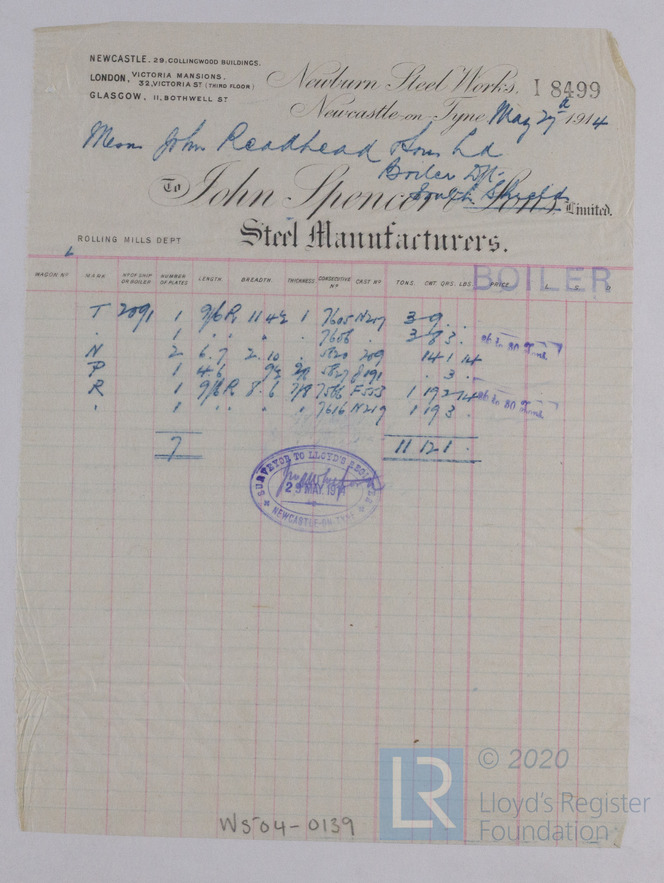 NEWCASTLE. 29, COLLINGWOOD BUILDINGS.
LONDON, VICTORIA MANSIONS. 32, VICTORIA ST (THIRD FLOOR)
GLASGOW, 11, BOTHWELL ST
Newburn Steel Works.
I 8499
Newcastle-on-Tyne May 29th 1914
Messrs John Readhead & Sons Ld
Boiler Dpt.
South Shields
To John Spencer & Sons Limited.
ROLLING MILLS DEPT
Steel Manufacturers.
BOILER
WAGON No MARK No OF SHIP OR BOILER NUMBER OF PLATES LENGTH BREADTH THICKNESS CONSECUTIVE No CAST No TONS CWT. QRS. LBS. PRICE
T 2091 1 9/6 R 11 4½ 1 7605 N207 3 9 . .
" 1 " " " 7606 " 3 8 3 .
N 2 6. 7 2. 10 " 5820 209 14 1 14
P 1 4 6 . 3 .
R 1 9/6 R 8. 6 7/8 7586 F553 1 19 2 14
" 1 " " " 7616 N219 1 19 3 .
7 11 12 1 .
SURVEYOR TO LLOYD'S REGISTER
29 MAY. 1914
NEWCASTLE-ON-TYNE
WS-04-0139
LR
© 2020
Lloyd's Register
Foundation